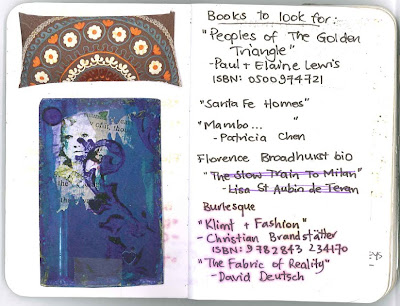 Books to look for:
"Peoples of The Golden
Triangle"
- Paul + Elaine Lewis
ISBN: 0500974721
"Santa Fe Homes"
"Mambo... "
- Patricia Chen
Florence Broadhurst bio
"The Slow Train To Milan"
- Lisa St Aubin de Teran
Burlesque
"Klimt + Fashion"
- Christian Brandstätter
ISBN: 9782843 234170
"The Fabric of Reality"
- David Deutsch